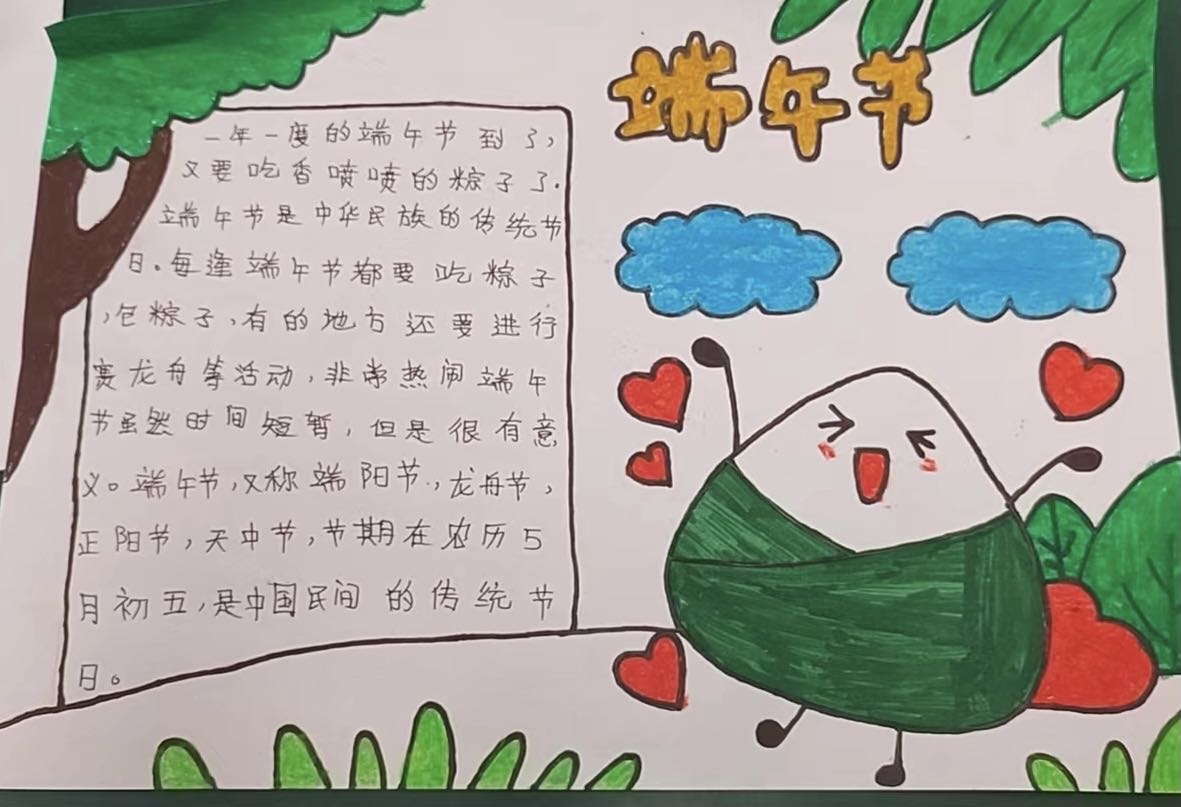 端午节
一年一度的端午节到了,
又要吃香喷喷的粽子了.
端午节是中华民族的传统节
日。每逢端午节都要吃粽子
,包粽子,有的地方还要进行
赛龙舟等活动,非常热闹端午
节虽然时间短暂,但是很有意
义。端午节,又称端阳节.,龙舟节,
正阳节,天中节,节期在农历5
月初五,是中国民间的传统节
日。